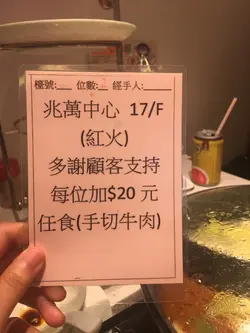 檯號:___ 位數:___ 經手人:____
兆萬中心 17/F
(紅火)
多謝顧客支持
每位加$20 元
任食(手切牛肉)